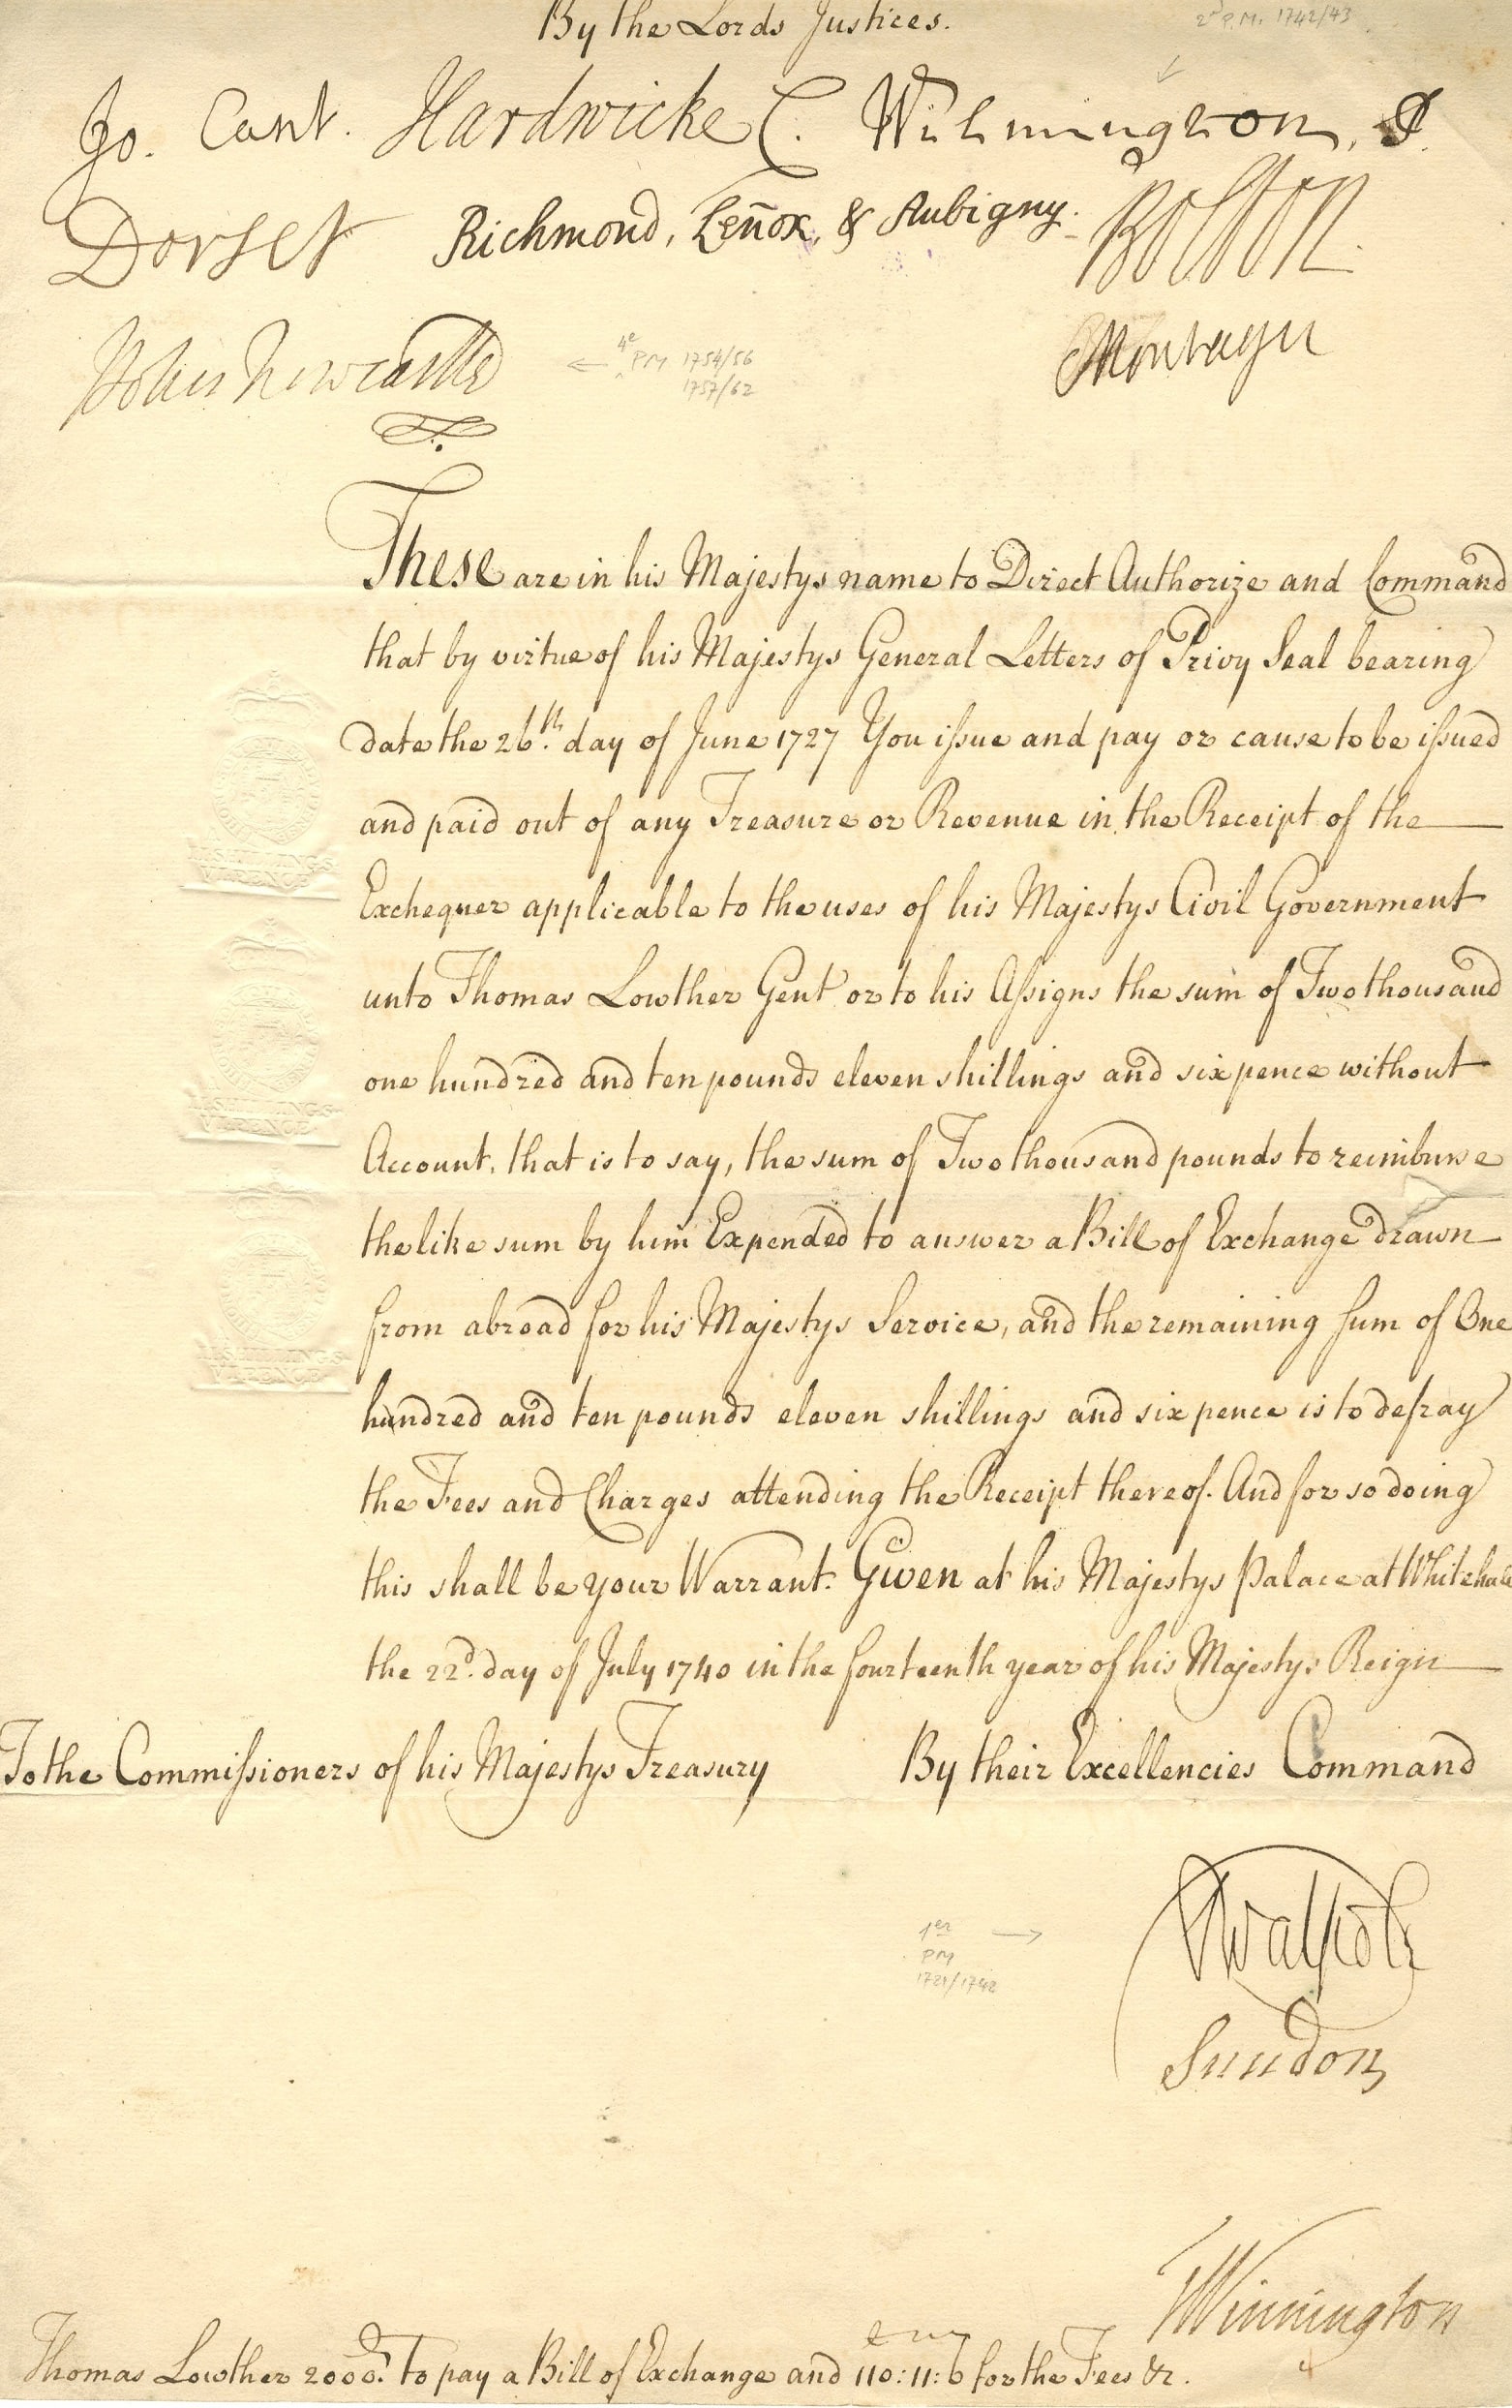 By the Lords Justices.
2d P.M. 1742/43
Jo. Cant. Hardwicke C. Wilmington, P.
Dorset Richmond, Leñox, & Aubigny. Bolton
Holles Newcastle
4e PM 1754/56
1757/62
Montagu
These are in his Majestys name to Direct Authorize and Command
that by virtue of his Majestys General Letters of Privy Seal bearing
date the 26th. day of June 1727 You issue and pay or cause to be issued
and paid out of any Treasure or Revenue in the Receipt of the
Exchequer applicable to the uses of his Majestys Civil Government
unto Thomas Lowther Gent or to his Assigns the sum of Two thousand
one hundred and ten pounds eleven shillings and six pence without
Account, that is to say, the sum of Two thousand pounds to reimburse
the like sum by him Expended to answer a Bill of Exchange drawn
from abroad for his Majestys Service, and the remaining Sum of One
hundred and ten pounds eleven shillings and six pence is to defray
the Fees and Charges attending the Receipt thereof. And for so doing
this shall be your Warrant. Given at his Majestys Palace at Whitehall
the 22d. day of July 1740 in the fourteenth year of his Majestys Reign
To the Commissioners of his Majestys Treasury By their Excellencies Command
1er
PM
1721/1742
RWalpole
Sundon
TWinnington
Thomas Lowther 2000l. To pay a Bill of Exchange and 110:11:6 for the Fees &c.
VI SHILLINGS
VI PENCE
VI SHILLINGS
VI PENCE
VI SHILLINGS
VI PENCE